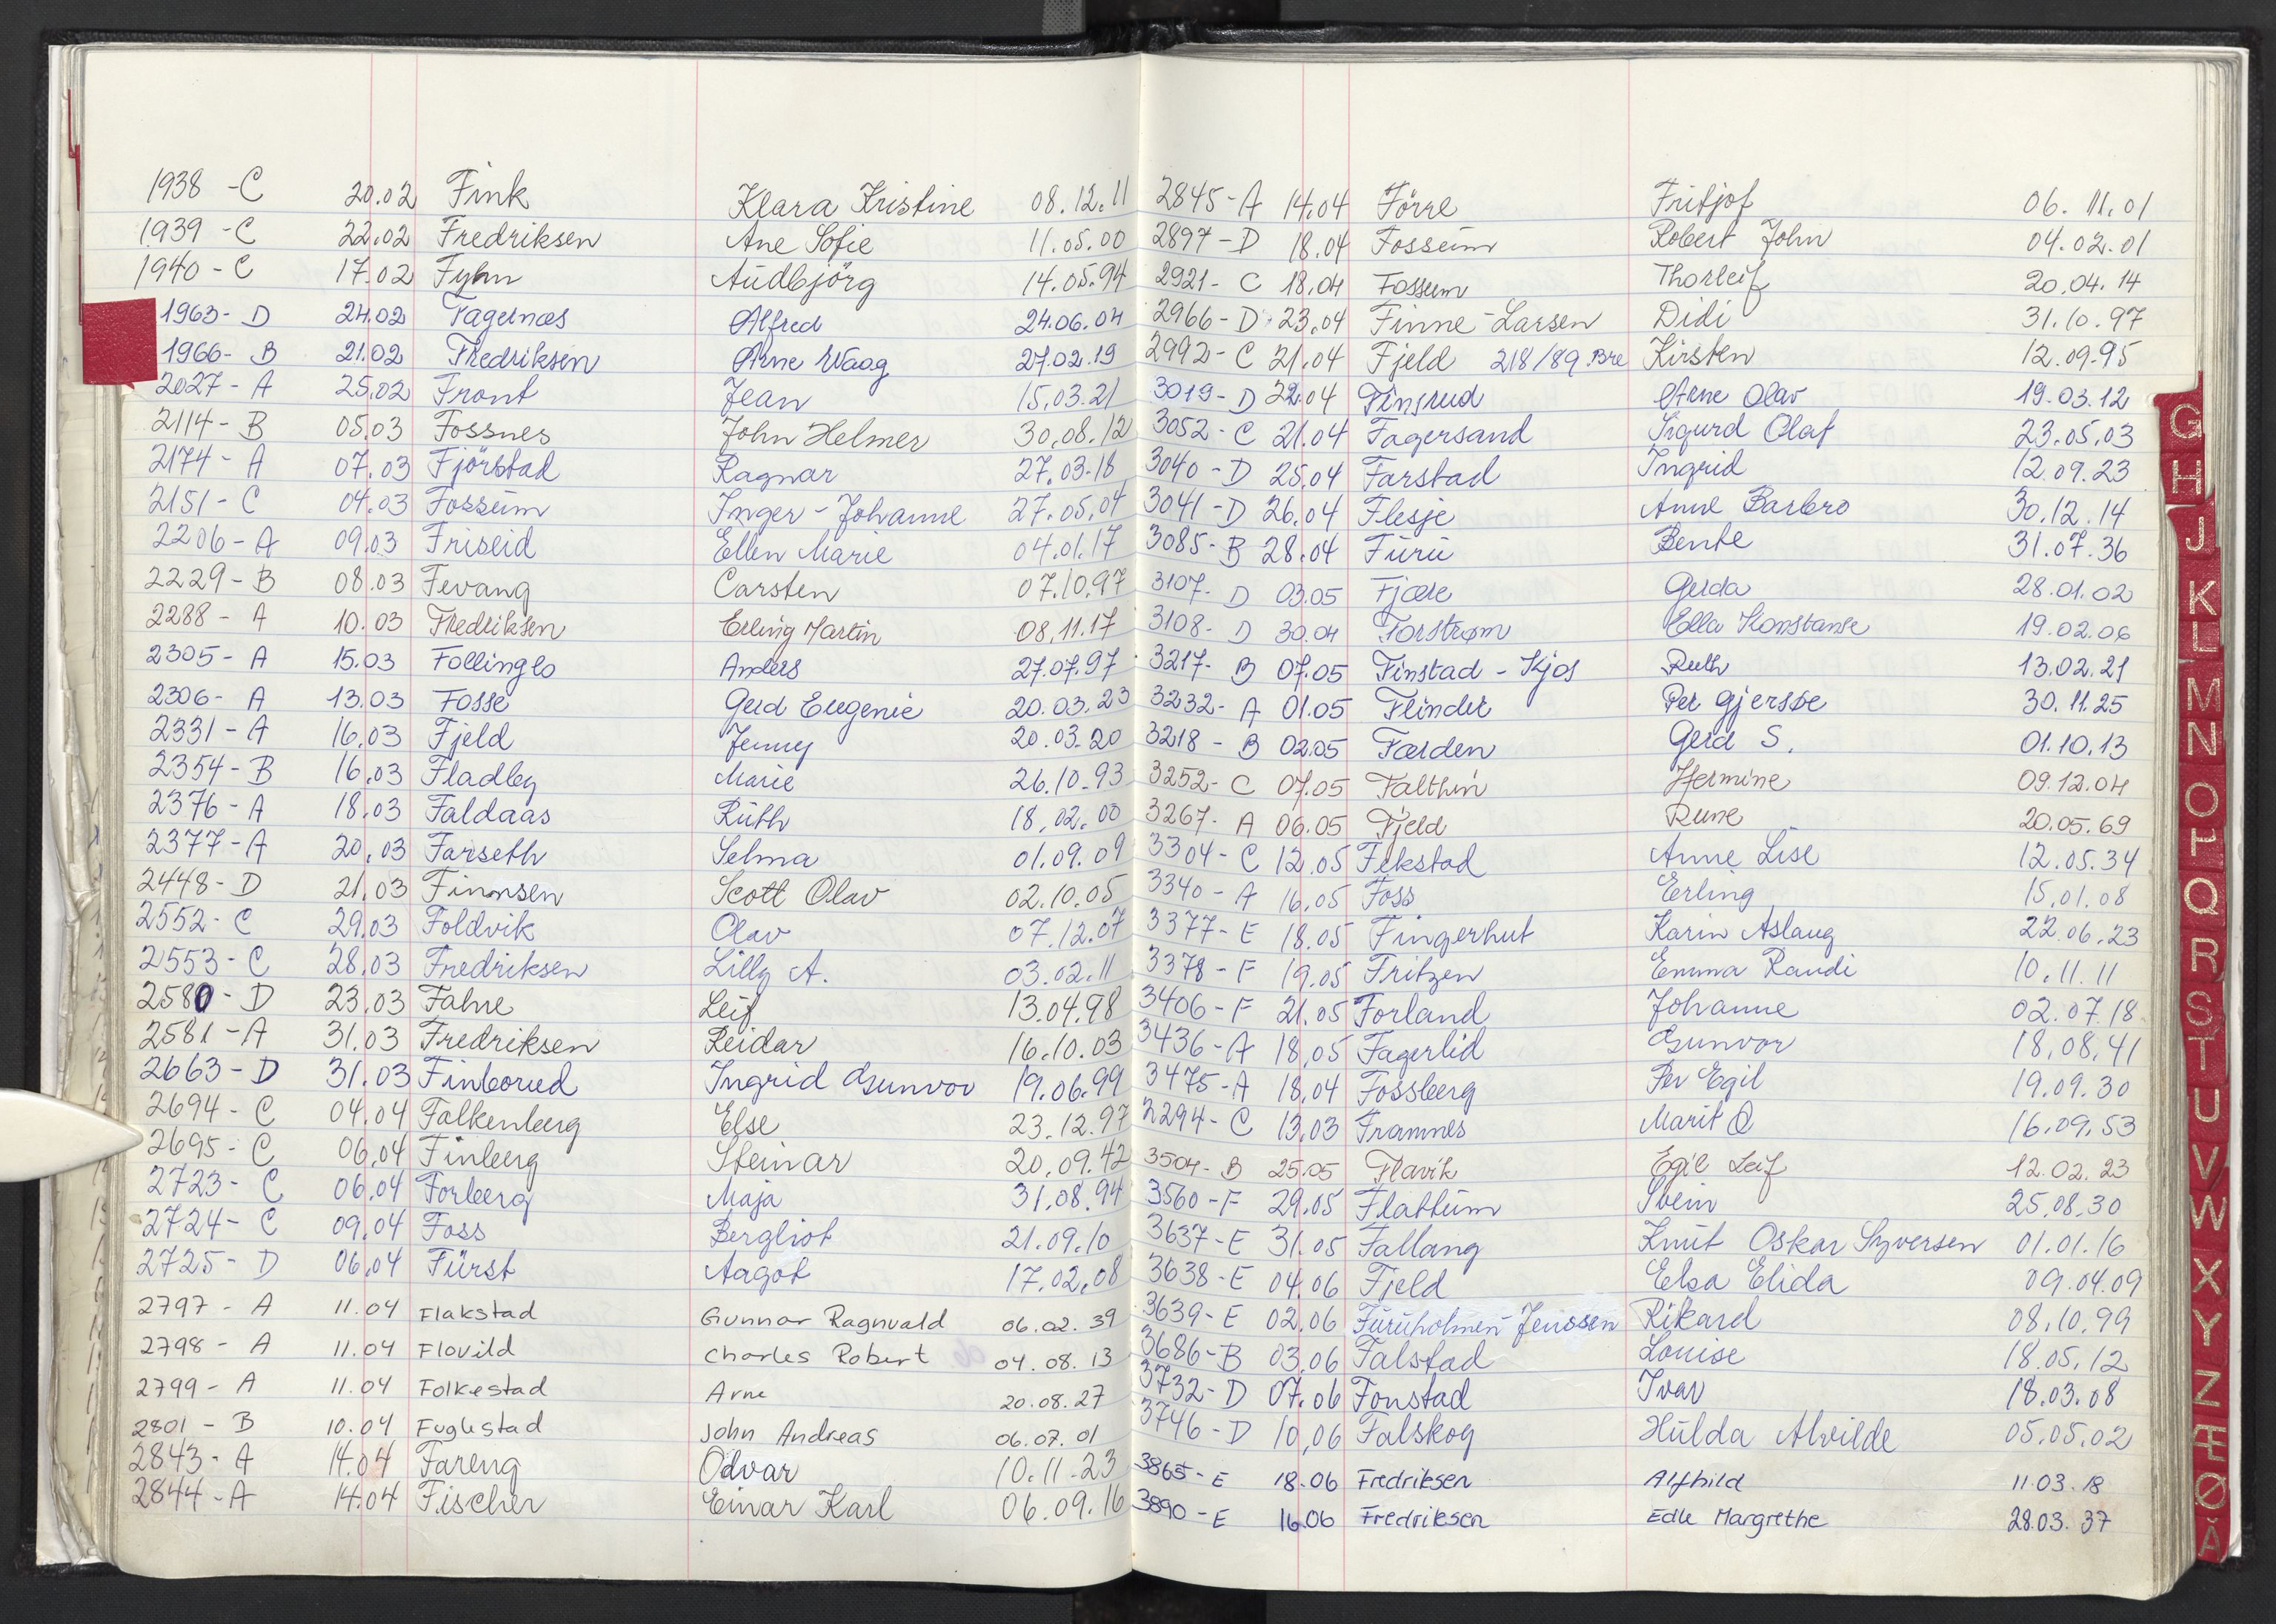 1938 - C 20.02 Fink Klara Kristine 08.12.11
1939 - C 22.02 Fredriksen Ane Sofie 11.05.00
1940 - C 17.02 Fyhn Audbjörg 14.05.94
1963 - D 24.02 Fagernæs Alfred 24.06.04
1966 - B 21.02 Fredriksen Arne Waag 27.02.19
2027 - A 25.02 Front Jean 15.03.21
2114 - B 05.03 Fossnes John Helmer 30.08.12
2174 - A 07.03 Fjörstad Ragnar 27.03.18
2151 - C 04.03 Fossum Inger-Johanne 27.05.04
2206 - A 09.03 Friseid Ellen Marie 04.01.17
2229 - B 08.03 Fevang Carsten 07.10.97
2288 - A 10.03 Fredriksen Erling Martin 08.11.17
2305 - A 15.03 Follinglo Anders 27.07.97
2306 - A 13.03 Fosse Gerd Eugenie 20.03.23
2331 - A 16.03 Fjeld Jenny 20.03.20
2354 - B 16.03 Fladby Marie 26.10.93
2376 - A 18.03 Faldaas Ruth 18.02.00
2377 - A 20.03 Farseth Selma 01.09.09
2448 - D 21.03 Finnsen Scott Olav 02.10.05
2552 - C 29.03 Foldvik Olav 07.12.07
2553 - C 28.03 Fredriksen Lilly A. 03.02.11
2580 - D 23.03 Falne Leif 13.04.98
2581 - A 31.03 Fredriksen Reidar 16.10.03
2663 - D 31.03 Finborud Ingrid Gunvor 19.06.99
2694 - C 04.04 Falkenberg Else 23.12.97
2695 - C 06.04 Finberg Steinar 20.09.42
2723 - C 06.04 Forberg Maja 31.08.94
2724 - C 09.04 Foss Bergliot 21.09.10
2725 - D 06.04 Fürst Aagot 17.02.08
2797 - A 11.04 Flakstad Gunnar Ragnvald 06.02.39
2798 - A 11.04 Flovild Charles Robert 04.08.13
2799 - A 11.04 Folkestad Arne 20.08.27
2801 - B 10.04 Fuglestad John Andreas 06.07.01
2843 - A 14.04 Fareng Odvar 10.11.23
2844 - A 14.04 Fischer Einar Karl 06.09.16
2845 - A 14.04 Förre Fritjof 06.11.01
2897 - D 18.04 Fossum Robert John 04.02.01
2921 - C 18.04 Fossum Thorleif 20.04.14
2966 - D 23.04 Finne-Larsen Didi 31.10.97
2992 - C 21.04 Fjeld 218/89 Bre Kirsten 12.09.95
3019 - D 22.04 Finsrud Arne Olav 19.03.12
3052 - C 21.04 Fagersand Sigurd Olaf 23.05.03
3040 - D 25.04 Farstad Ingrid 12.09.23
3041 - D 26.04 Flesje Anne Barbro 30.12.14
3085 - B 28.04 Furu Bente 31.07.36
3107 - D 03.05 Fjære Gerda 28.01.02
3108 - D 30.04 Forstrøm Ella Konstanse 19.02.06
3217 - B 07.05 Finstad - Kjos Ruth 13.02.21
3232 - A 01.05 Flindt Per Gjersøe 30.11.25
3218 - B 02.05 Færden Gerd S. 01.10.13
3252 - C 07.05 Falthin Hermine 09.12.04
3267 - A 06.05 Fjeld Rune 20.05.69
3304 - C 12.05 Fekstad Anne Lise 12.05.34
3340 - A 16.05 Foss Erling 15.01.08
3377 - E 18.05 Fingerhut Karin Aslaug 22.06.23
3378 - F 19.05 Fritzen Emma Randi 10.11.11
3406 - F 21.05 Forland Johanne 02.07.18
3436 - A 18.05 Fagerlid Gunvor 18.08.41
3475 - A 18.04 Fossberg Per Egil 19.09.30
2294 - C 13.03 Framnes Marit Q 16.09.53
3504 - B 25.05 Flavik Egil Leif 12.02.23
3560 - F 29.05 Flattum Svein 25.08.30
3637 - E 31.05 Fallang Knut Oskar Syversen 01.01.16
3638 - E 04.06 Fjeld Elsa Elida 09.04.09
3639 - E 02.06 Furuholmen-Jenssen Rikard 08.10.99
3686 - B 03.06 Falstad Louise 18.05.12
3732 - D 07.06 Fonstad Ivar 18.03.08
3746 - D 10.06 Falskog Hulda Alvilde 05.05.02
3865 - E 18.06 Fredriksen Alfhild 11.03.18
3890 - E 16.06 Fredriksen Edle Margrethe 28.03.37
G
H
J
K
L
M
N
O
P
Q
R
S
T
U
V
W
X
Y
Z
Æ
Ø
Å